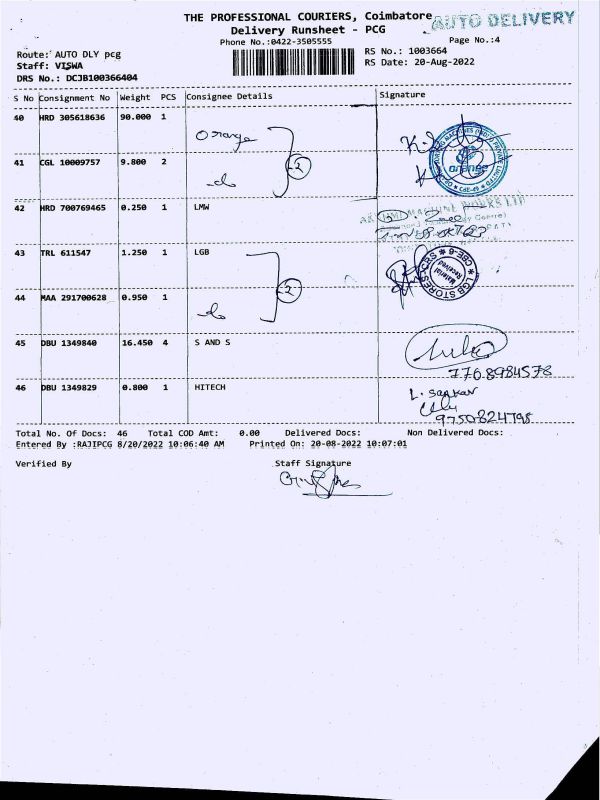 THE PROFESSIONAL COURIERS, Coimbatore
AUTO DELIVERY
Delivery Runsheet - PCG
Phone No.:0422-3505555
Page No.:4
Route: AUTO DLY pcg
RS No.: 1003664
Staff: VISWA
RS Date: 20-Aug-2022
DRS No.: DCJB100366404
S No Consignment No Weight PCS Consignee Details Signature
40 HRD 305618636 90.000 1 Orange
2
41 CGL 10009757 9.800 2 do
orange
42 HRD 700769465 0.250 1 LMW
43 TRL 611547 1.250 1 LGB
2
LGB STORES CRS CBE-6
Material Received
44 MAA 291700628 0.950 1 do
45 DBU 1349840 16.450 4 S AND S
7708984578
46 DBU 1349829 0.800 1 HITECH
9750824798
Total No. Of Docs: 46 Total COD Amt: 0.00 Delivered Docs: Non Delivered Docs:
Entered By :RAJIPCG 8/20/2022 10:06:40 AM Printed On: 20-08-2022 10:07:01
Verified By Staff Signature